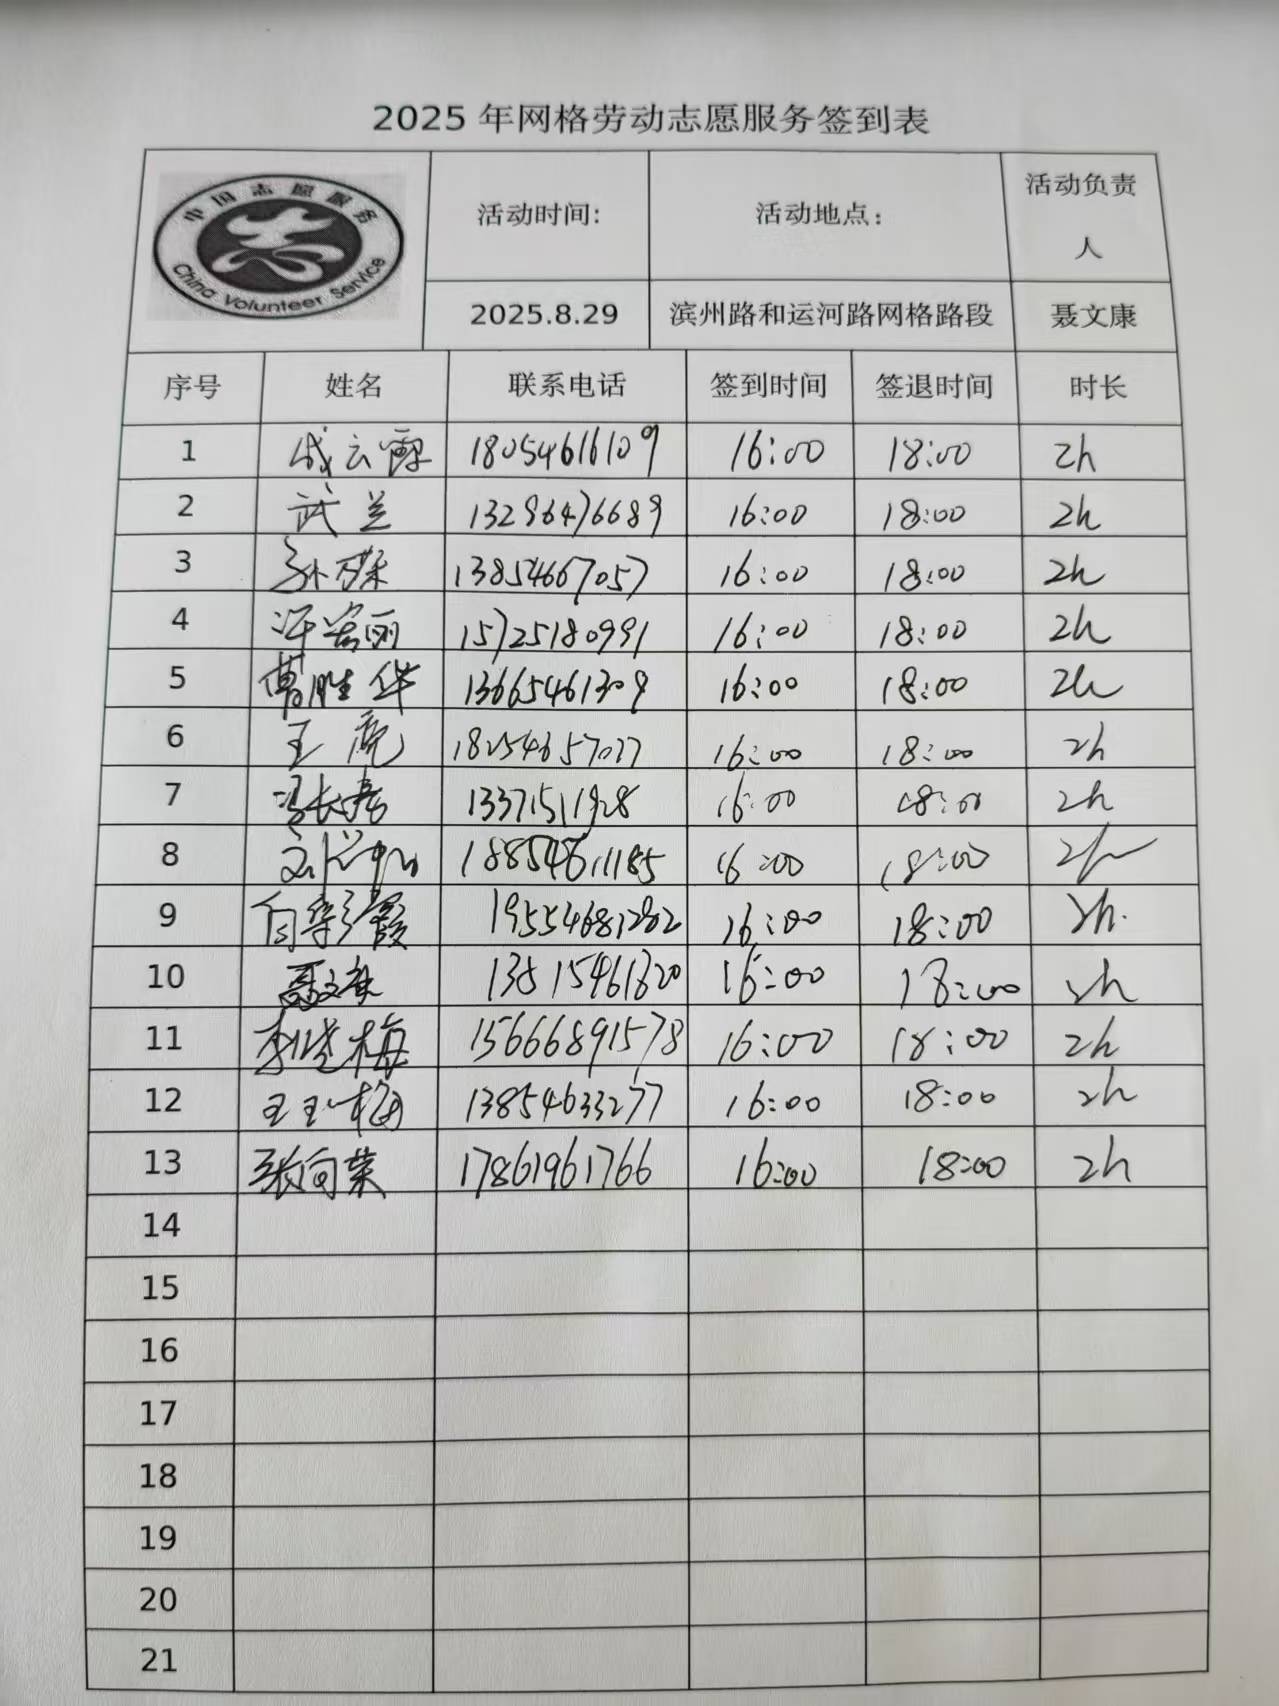 2025 年网格劳动志愿服务签到表
中国志愿服务
China Volunteer Service
活动时间: 活动地点: 活动负责人
2025.8.29 滨州路和运河路网格路段 聂文康
序号 姓名 联系电话 签到时间 签退时间 时长
1 成云霞 18054616109 16:00 18:00 2h
2 武兰 13296476689 16:00 18:00 2h
3 13854667057 16:00 18:00 2h
4 15725180991 16:00 18:00 2h
5 曹胜华 13665461309 16:00 18:00 2h
6 王亮 18254657077 16:00 18:00 2h
7 13371511928 16:00 18:00 2h
8 18854611185 16:00 18:00 2h
9 向彩霞 19554681282 16:00 18:00 2h.
10 聂文康 13815461820 16:00 18:00 2h
11 李晓梅 15666891578 16:00 18:00 2h
12 王玉梅 13854633277 16:00 18:00 2h
13 张向荣 17861961766 16:00 18:00 2h
14
15
16
17
18
19
20
21